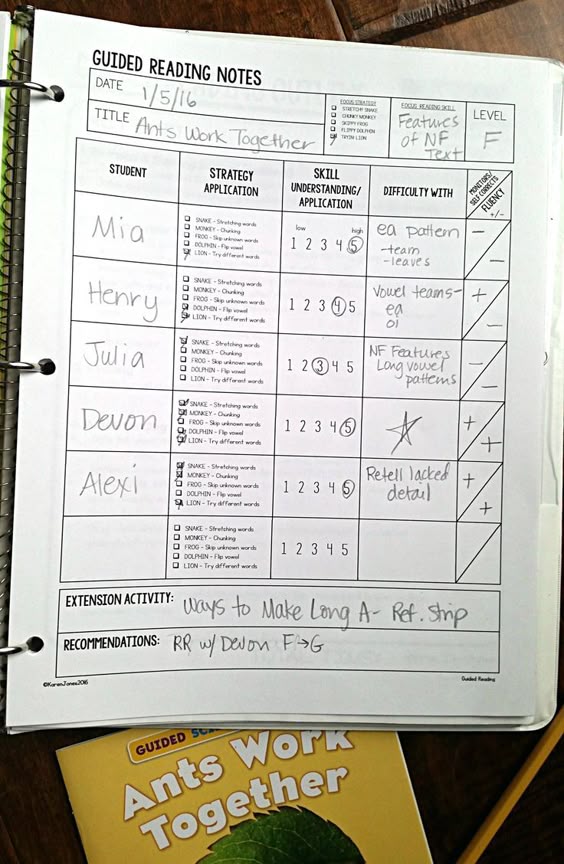 GUIDED READING NOTES
DATE 1/5/16
TITLE Ants Work Together
FOCUS STRATEGY
STRETCHY SNAKE
CHUNKY MONKEY
SKIPPY FROG
FLIPPY DOLPHIN
TRYIN LION
FOCUS READING SKILL
Features
of NF
Text
LEVEL
F
STUDENT
STRATEGY
APPLICATION
SKILL
UNDERSTANDING/
APPLICATION
DIFFICULTY WITH
MONITORS/
SELF CORRECTS
FLUENCY
+/-
Mia
SNAKE - Stretching words
MONKEY - Chunking
FROG - Skip unknown words
DOLPHIN - Flip vowel
LION - Try different words
low high
1 2 3 4 5
ea pattern
-team
-leaves
-
-
Henry
SNAKE - Stretching words
MONKEY - Chunking
FROG - Skip unknown words
DOLPHIN - Flip vowel
LION - Try different words
1 2 3 4 5
Vowel teams-
ea
oi
+
-
Julia
SNAKE - Stretching words
MONKEY - Chunking
FROG - Skip unknown words
DOLPHIN - Flip vowel
LION - Try different words
1 2 3 4 5
NF Features
Long vowel
patterns
-
-
Devon
SNAKE - Stretching words
MONKEY - Chunking
FROG - Skip unknown words
DOLPHIN - Flip vowel
LION - Try different words
1 2 3 4 5
+
+
Alexi
SNAKE - Stretching words
MONKEY - Chunking
FROG - Skip unknown words
DOLPHIN - Flip vowel
LION - Try different words
1 2 3 4 5
Retell lacked
detail
+
+
SNAKE - Stretching words
MONKEY - Chunking
FROG - Skip unknown words
DOLPHIN - Flip vowel
LION - Try different words
1 2 3 4 5
EXTENSION ACTIVITY: Ways to Make Long A- Ref. Strip
RECOMMENDATIONS: RR w/ Devon F→G
©KarenJones2016
Guided Reading
GUIDED
Ants Work
Together